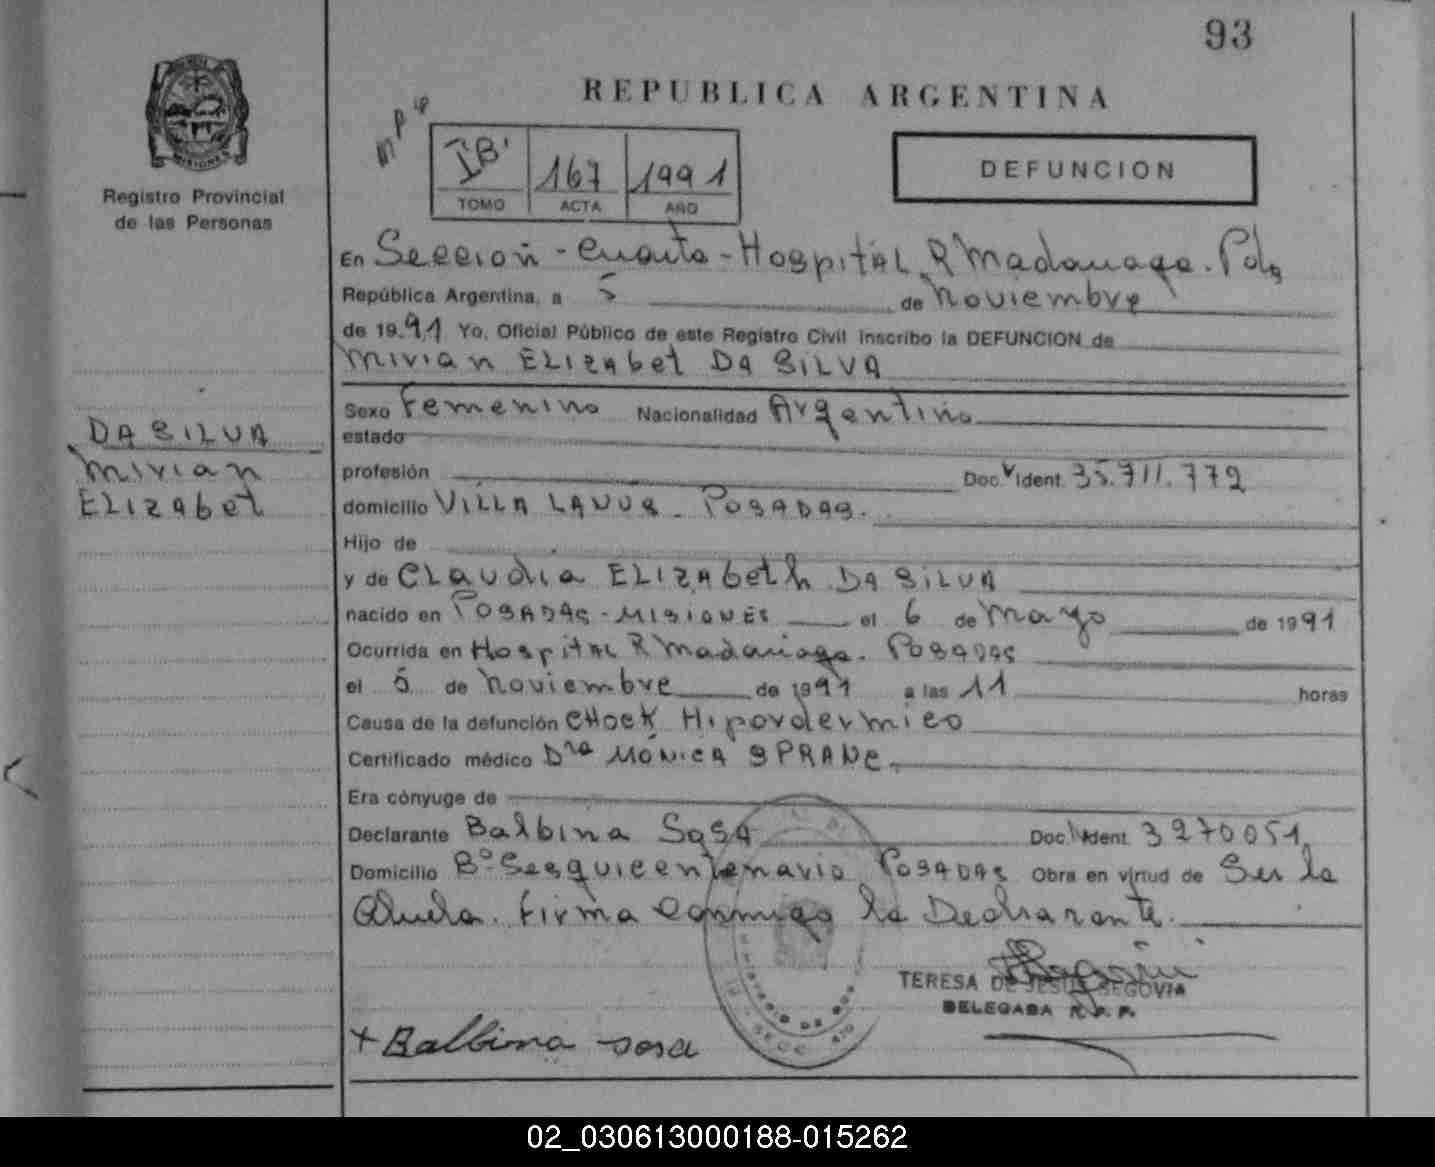 93
REPUBLICA ARGENTINA
MISIONES
Registro Provincial
de las Personas
167 1991
TOMO ACTA AÑO
DEFUNCION
En Seccion - Cuarta - Hospital R Madariaga. Pdas
República Argentina, a 5 de Noviembre
de 1991 Yo, Oficial Público de este Registro Civil Inscribo la DEFUNCION de
Mirian ELIZAbet DA SILVA
DA SILVA
Mirian
ELIZAbet
Sexo Femenino Nacionalidad Argentina
estado
profesión Doc. Ident. 35.711.772
domicilio VILLA LANUS - POSADAS.
Hijo de
y de CLaudia ELIZAbeth DA SILVA
nacido en POSADAS - MISIONES el 6 de Mayo de 1991
Ocurrida en Hospital R Madariaga. POSADAS
el 5 de Noviembre de 1991 a las 11 horas
Causa de la defunción CHock Hipovdermico
Certificado médico Dra MÓNICA SPRANE
Era cónyuge de
Declarante Balbina SOSA Doc. Ident. 3270051
Domicilio Bº Sesquicentenario POSADAS Obra en virtud de Ser la
Abuela. Firma Conmigo la Declarante.
TERESA DE JESUS SEGOVIA
DELEGADA R. P. P.
+ Balbina Sosa
02_030613000188-015262